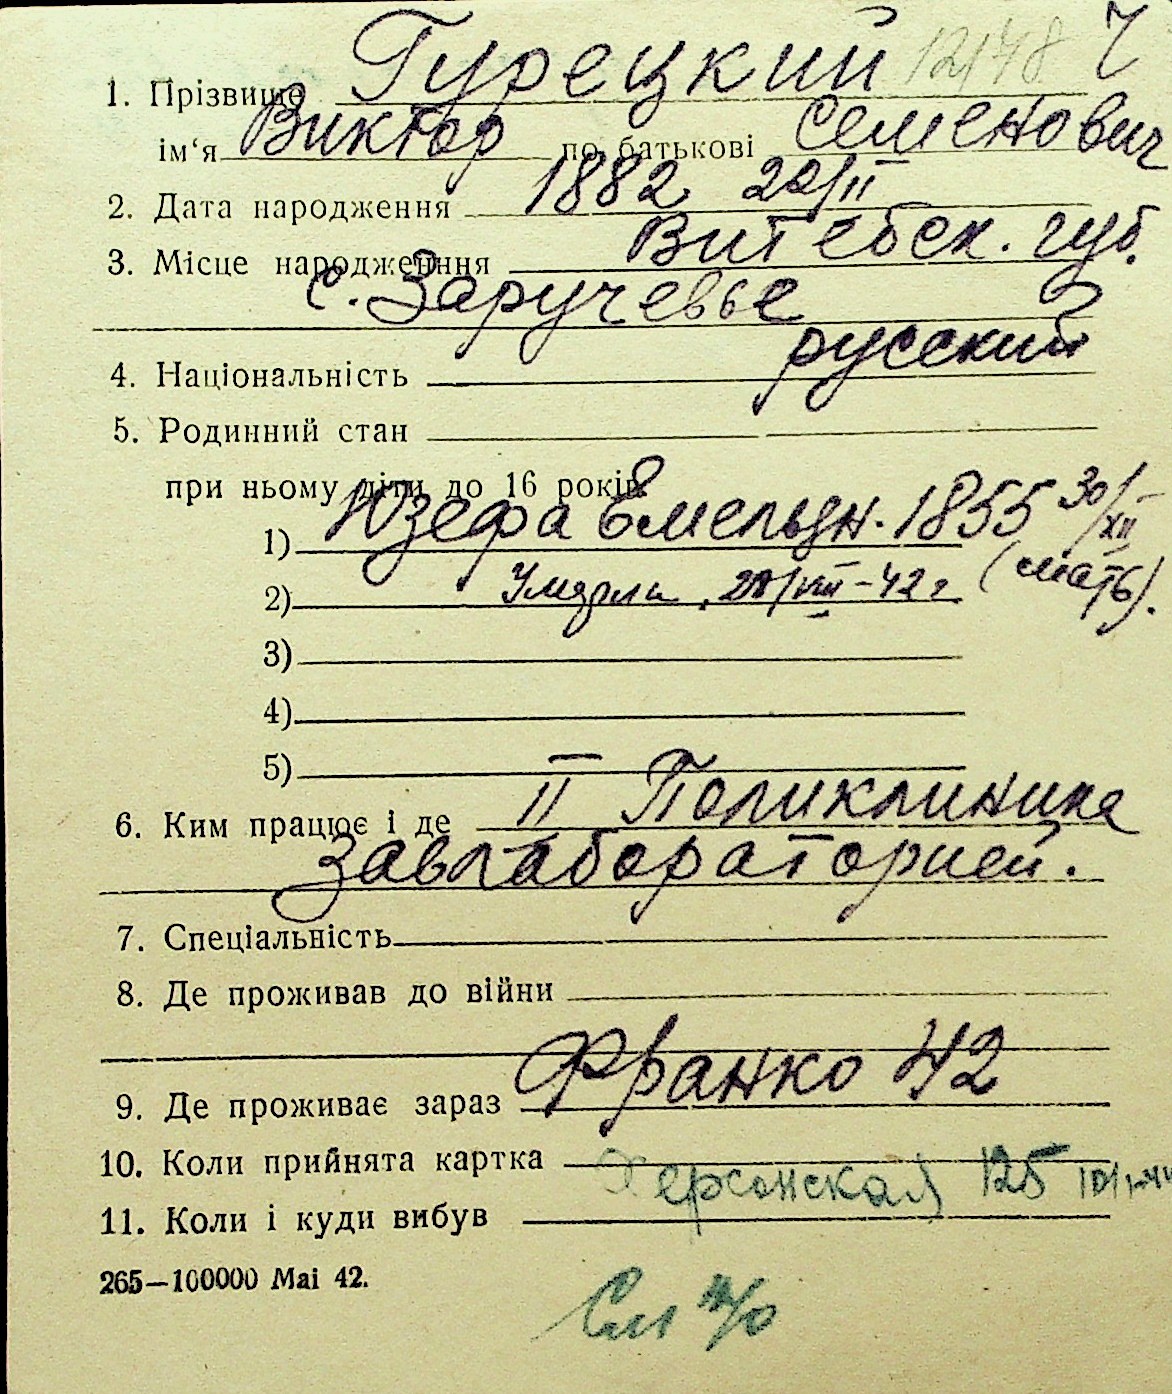 1. Прізвище Гурецкий 12/48 Г
ім‘я Виктор по батькові Семенович
2. Дата народження 1882 22/II
3. Місце народження Витебск. губ.
с. Заручевье
4. Національність русский
5. Родинний стан
при ньому діти до 16 років:
1) Юзефа Емельян. 1855 30/XII
2) Умерла 28/VIII-42 г. (мать).
3)
4)
5)
6. Ким працює і де II Поликлиника
Завлабораторией.
7. Спеціальність
8. Де проживав до війни
9. Де проживає зараз Франко 42
10. Коли прийнята картка Херсонская 125
11. Коли і куди вибув
265—100000 Mai 42.